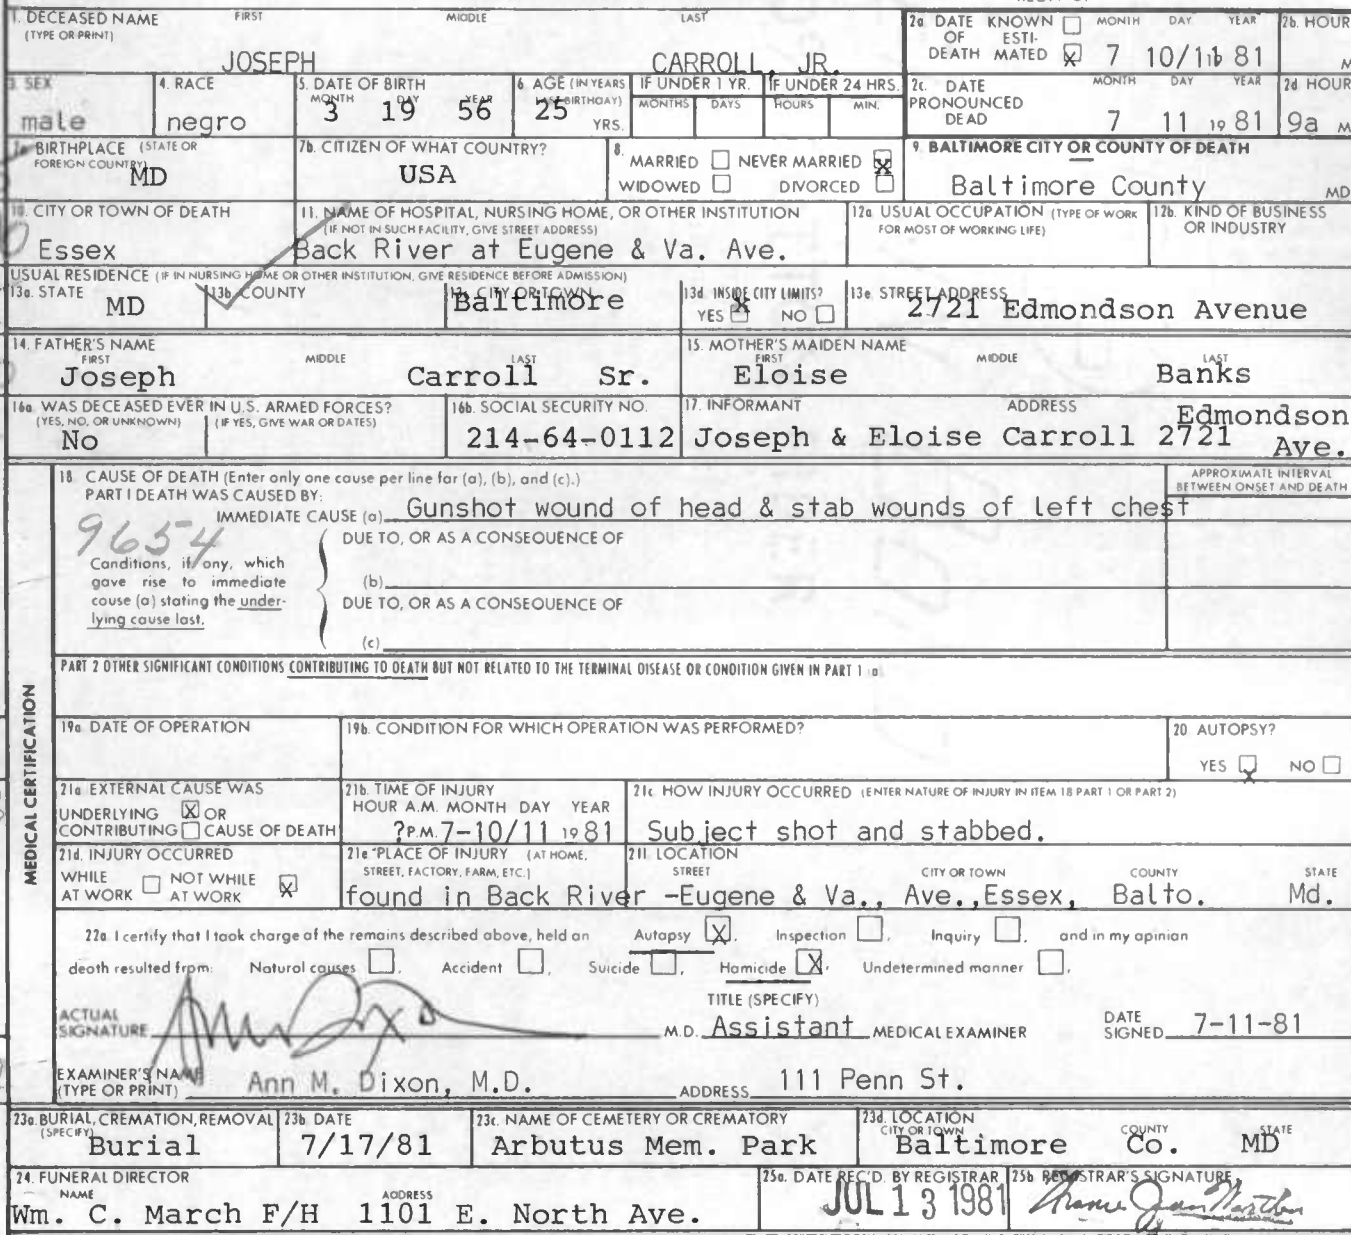 1. DECEASED NAME FIRST MIDDLE LAST
(TYPE OR PRINT)
JOSEPH CARROLL, JR.
2a. DATE KNOWN
OF ESTI-
DEATH MATED X MONTH DAY YEAR
7 10/11 81
2b. HOUR
M
3. SEX
male
4. RACE
negro
5. DATE OF BIRTH
MONTH DAY YEAR
3 19 56
6. AGE (IN YEARS
LAST BIRTHDAY)
25 YRS.
IF UNDER 1 YR.
MONTHS DAYS
IF UNDER 24 HRS.
HOURS MIN.
2c. DATE
PRONOUNCED
DEAD
MONTH DAY YEAR
7 11 19 81
2d HOUR
9a M
7a BIRTHPLACE (STATE OR
FOREIGN COUNTRY)
MD
7b. CITIZEN OF WHAT COUNTRY?
USA
8.
MARRIED NEVER MARRIED X
WIDOWED DIVORCED
9. BALTIMORE CITY OR COUNTY OF DEATH
Baltimore County MD
10. CITY OR TOWN OF DEATH
Essex
11. NAME OF HOSPITAL, NURSING HOME, OR OTHER INSTITUTION
(IF NOT IN SUCH FACILITY, GIVE STREET ADDRESS)
Back River at Eugene & Va. Ave.
12a USUAL OCCUPATION (TYPE OF WORK
FOR MOST OF WORKING LIFE)
12b. KIND OF BUSINESS
OR INDUSTRY
USUAL RESIDENCE (IF IN NURSING HOME OR OTHER INSTITUTION, GIVE RESIDENCE BEFORE ADMISSION)
13a. STATE
MD
13b. COUNTY
CITY OR TOWN
Baltimore
13d. INSIDE CITY LIMITS?
YES X NO
13e. STREET ADDRESS
2721 Edmondson Avenue
14. FATHER'S NAME
FIRST MIDDLE LAST
Joseph Carroll Sr.
15. MOTHER'S MAIDEN NAME
FIRST MIDDLE LAST
Eloise Banks
16a. WAS DECEASED EVER IN U.S. ARMED FORCES?
(YES, NO, OR UNKNOWN) (IF YES, GIVE WAR OR DATES)
No
16b. SOCIAL SECURITY NO.
214-64-0112
17. INFORMANT ADDRESS
Joseph & Eloise Carroll 2721 Edmondson
Ave.
MEDICAL CERTIFICATION
18. CAUSE OF DEATH (Enter only one cause per line for (a), (b), and (c).)
PART I DEATH WAS CAUSED BY:
IMMEDIATE CAUSE (a) Gunshot wound of head & stab wounds of left chest
APPROXIMATE INTERVAL
BETWEEN ONSET AND DEATH
9654
Conditions, if any, which
gave rise to immediate
cause (a) stating the under-
lying cause last.
DUE TO, OR AS A CONSEQUENCE OF
(b)
DUE TO, OR AS A CONSEQUENCE OF
(c)
PART 2 OTHER SIGNIFICANT CONDITIONS CONTRIBUTING TO DEATH BUT NOT RELATED TO THE TERMINAL DISEASE OR CONDITION GIVEN IN PART 1 (a)
19a. DATE OF OPERATION
19b. CONDITION FOR WHICH OPERATION WAS PERFORMED?
20. AUTOPSY?
YES X NO
21a EXTERNAL CAUSE WAS
UNDERLYING X OR
CONTRIBUTING CAUSE OF DEATH
21b. TIME OF INJURY
HOUR A.M. MONTH DAY YEAR
? P.M. 7-10/11 19 81
21c. HOW INJURY OCCURRED (ENTER NATURE OF INJURY IN ITEM 18 PART 1 OR PART 2)
Subject shot and stabbed.
21d. INJURY OCCURRED
WHILE NOT WHILE
AT WORK AT WORK X
21e PLACE OF INJURY (AT HOME,
STREET, FACTORY, FARM, ETC.)
found in Back River
21f. LOCATION
STREET CITY OR TOWN COUNTY STATE
-Eugene & Va., Ave., Essex, Balto. Md.
22a. I certify that I took charge of the remains described above, held an Autopsy X, Inspection , Inquiry , and in my opinion
death resulted from: Natural causes , Accident , Suicide , Homicide X, Undetermined manner ,
ACTUAL
SIGNATURE
M.D.
TITLE (SPECIFY)
Assistant MEDICAL EXAMINER
DATE
SIGNED 7-11-81
EXAMINER'S NAME
(TYPE OR PRINT) Ann M. Dixon, M.D. ADDRESS 111 Penn St.
23a. BURIAL, CREMATION, REMOVAL
(SPECIFY)
Burial
23b. DATE
7/17/81
23c. NAME OF CEMETERY OR CREMATORY
Arbutus Mem. Park
23d. LOCATION
CITY OR TOWN COUNTY STATE
Baltimore Co. MD
24. FUNERAL DIRECTOR
NAME ADDRESS
Wm. C. March F/H 1101 E. North Ave.
25a. DATE REC'D. BY REGISTRAR
JUL 13 1981
25b. REGISTRAR'S SIGNATURE